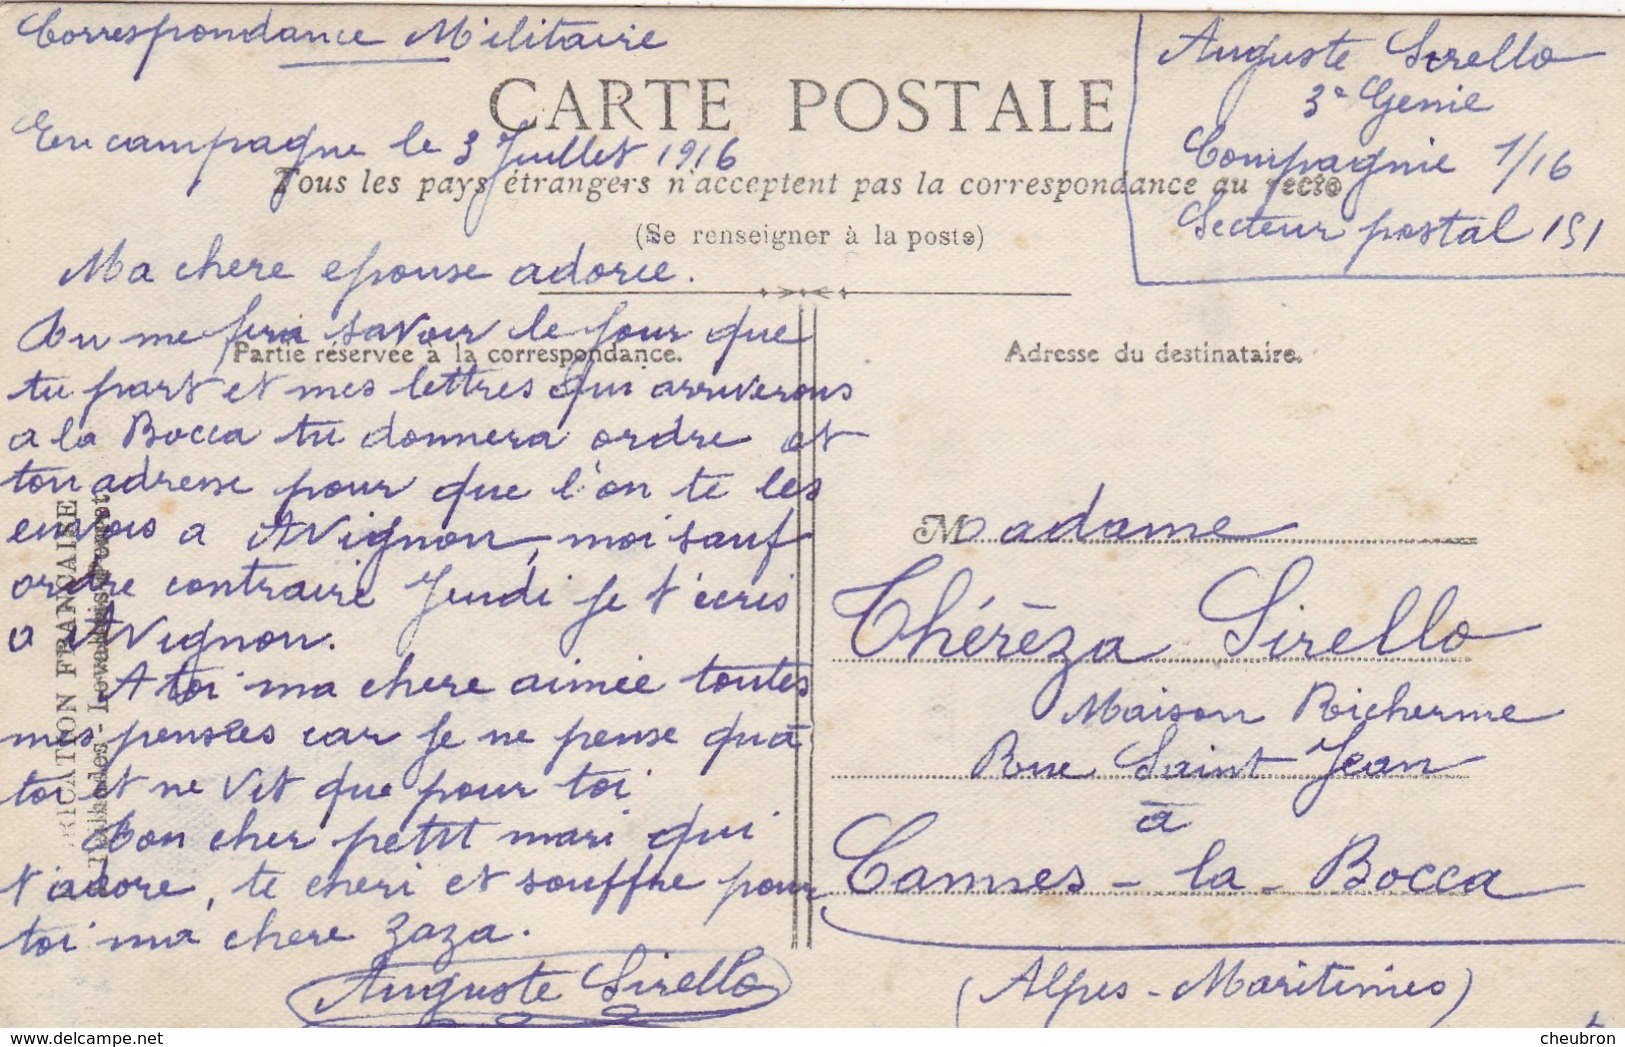 Correspondance Militaire
Auguste Sirello
3e Genie
Compagnie 1/16
Secteur postal 151
CARTE POSTALE
En campagne le 3 Juillet 1916
Tous les pays étrangers n'acceptent pas la correspondance au recto
(Se renseigner à la poste)
Ma chere epouse adoree.
Tu me fera savoir le jour que
Partie réservée à la correspondance.
tu part et mes lettres qui arriverons
a la Bocca tu donnera ordre et
ton adresse pour que l'on te les
envois a Avignon, moi sauf
ordre contraire Jeudi je t'écris
a Avignon.
A toi ma chere aimée toutes
mes pensées car je ne pense qu'à
toi et ne vit que pour toi
Ton cher petit mari qui
t'adore, te cheri et souffre pour
toi ma chere Zaza.
Auguste Sirello
Adresse du destinataire.
Madame
Thérèza Sirello
Maison Richerme
Rue Saint Jean
à
Cannes-la-Bocca
(Alpes-Maritimes)
RICATION FRANÇAISE
cheubron